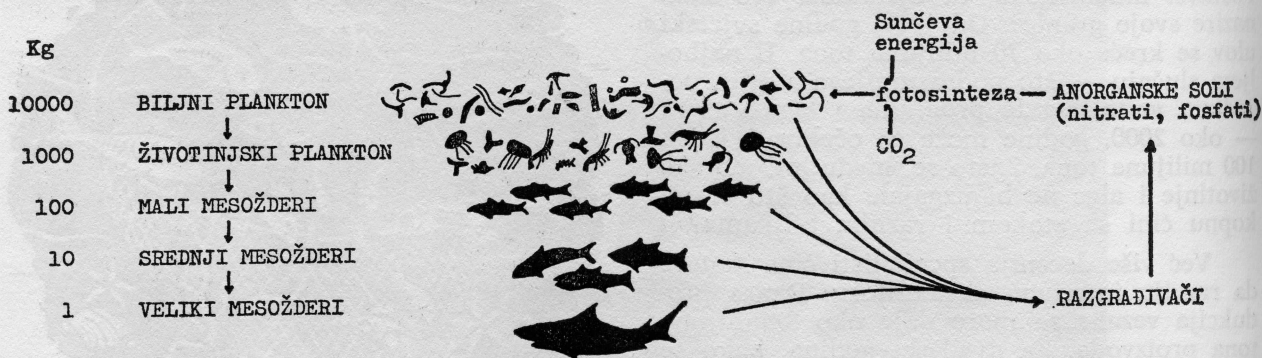 Kg
10000 BILJNI PLANKTON
1000 ŽIVOTINJSKI PLANKTON
100 MALI MESOŽDERI
10 SREDNJI MESOŽDERI
1 VELIKI MESOŽDERI
Sunčeva
energija
fotosinteza
CO₂
ANORGANSKE SOLI
(nitrati, fosfati)
RAZGRAĐIVAČI